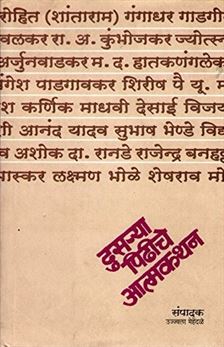 रोहित (शांताराम) गंगाधर गाडगी
वलकर रा. अ. कुंभोजकर ज्योत्स्न
अर्जुनवाडकर म. द. हातकणंगलेक
मंगेश पाडगावकर शिरीष पै यू. म
श कर्णिक माधवी देसाई विजा
ी आनंद यादव सुभाष भेण्डे वि
व अशोक दा. रानडे राजेन्द्र बनह
ास्कर लक्ष्मण भोळे शेषराव मो
दुसऱ्या
पिढीचे
आत्मकथन
संपादक
उज्ज्वला मेहेंदळे